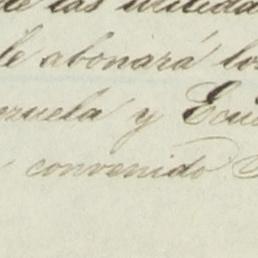 de las utilida
le abonará los
ezuela y Ecua
convenido